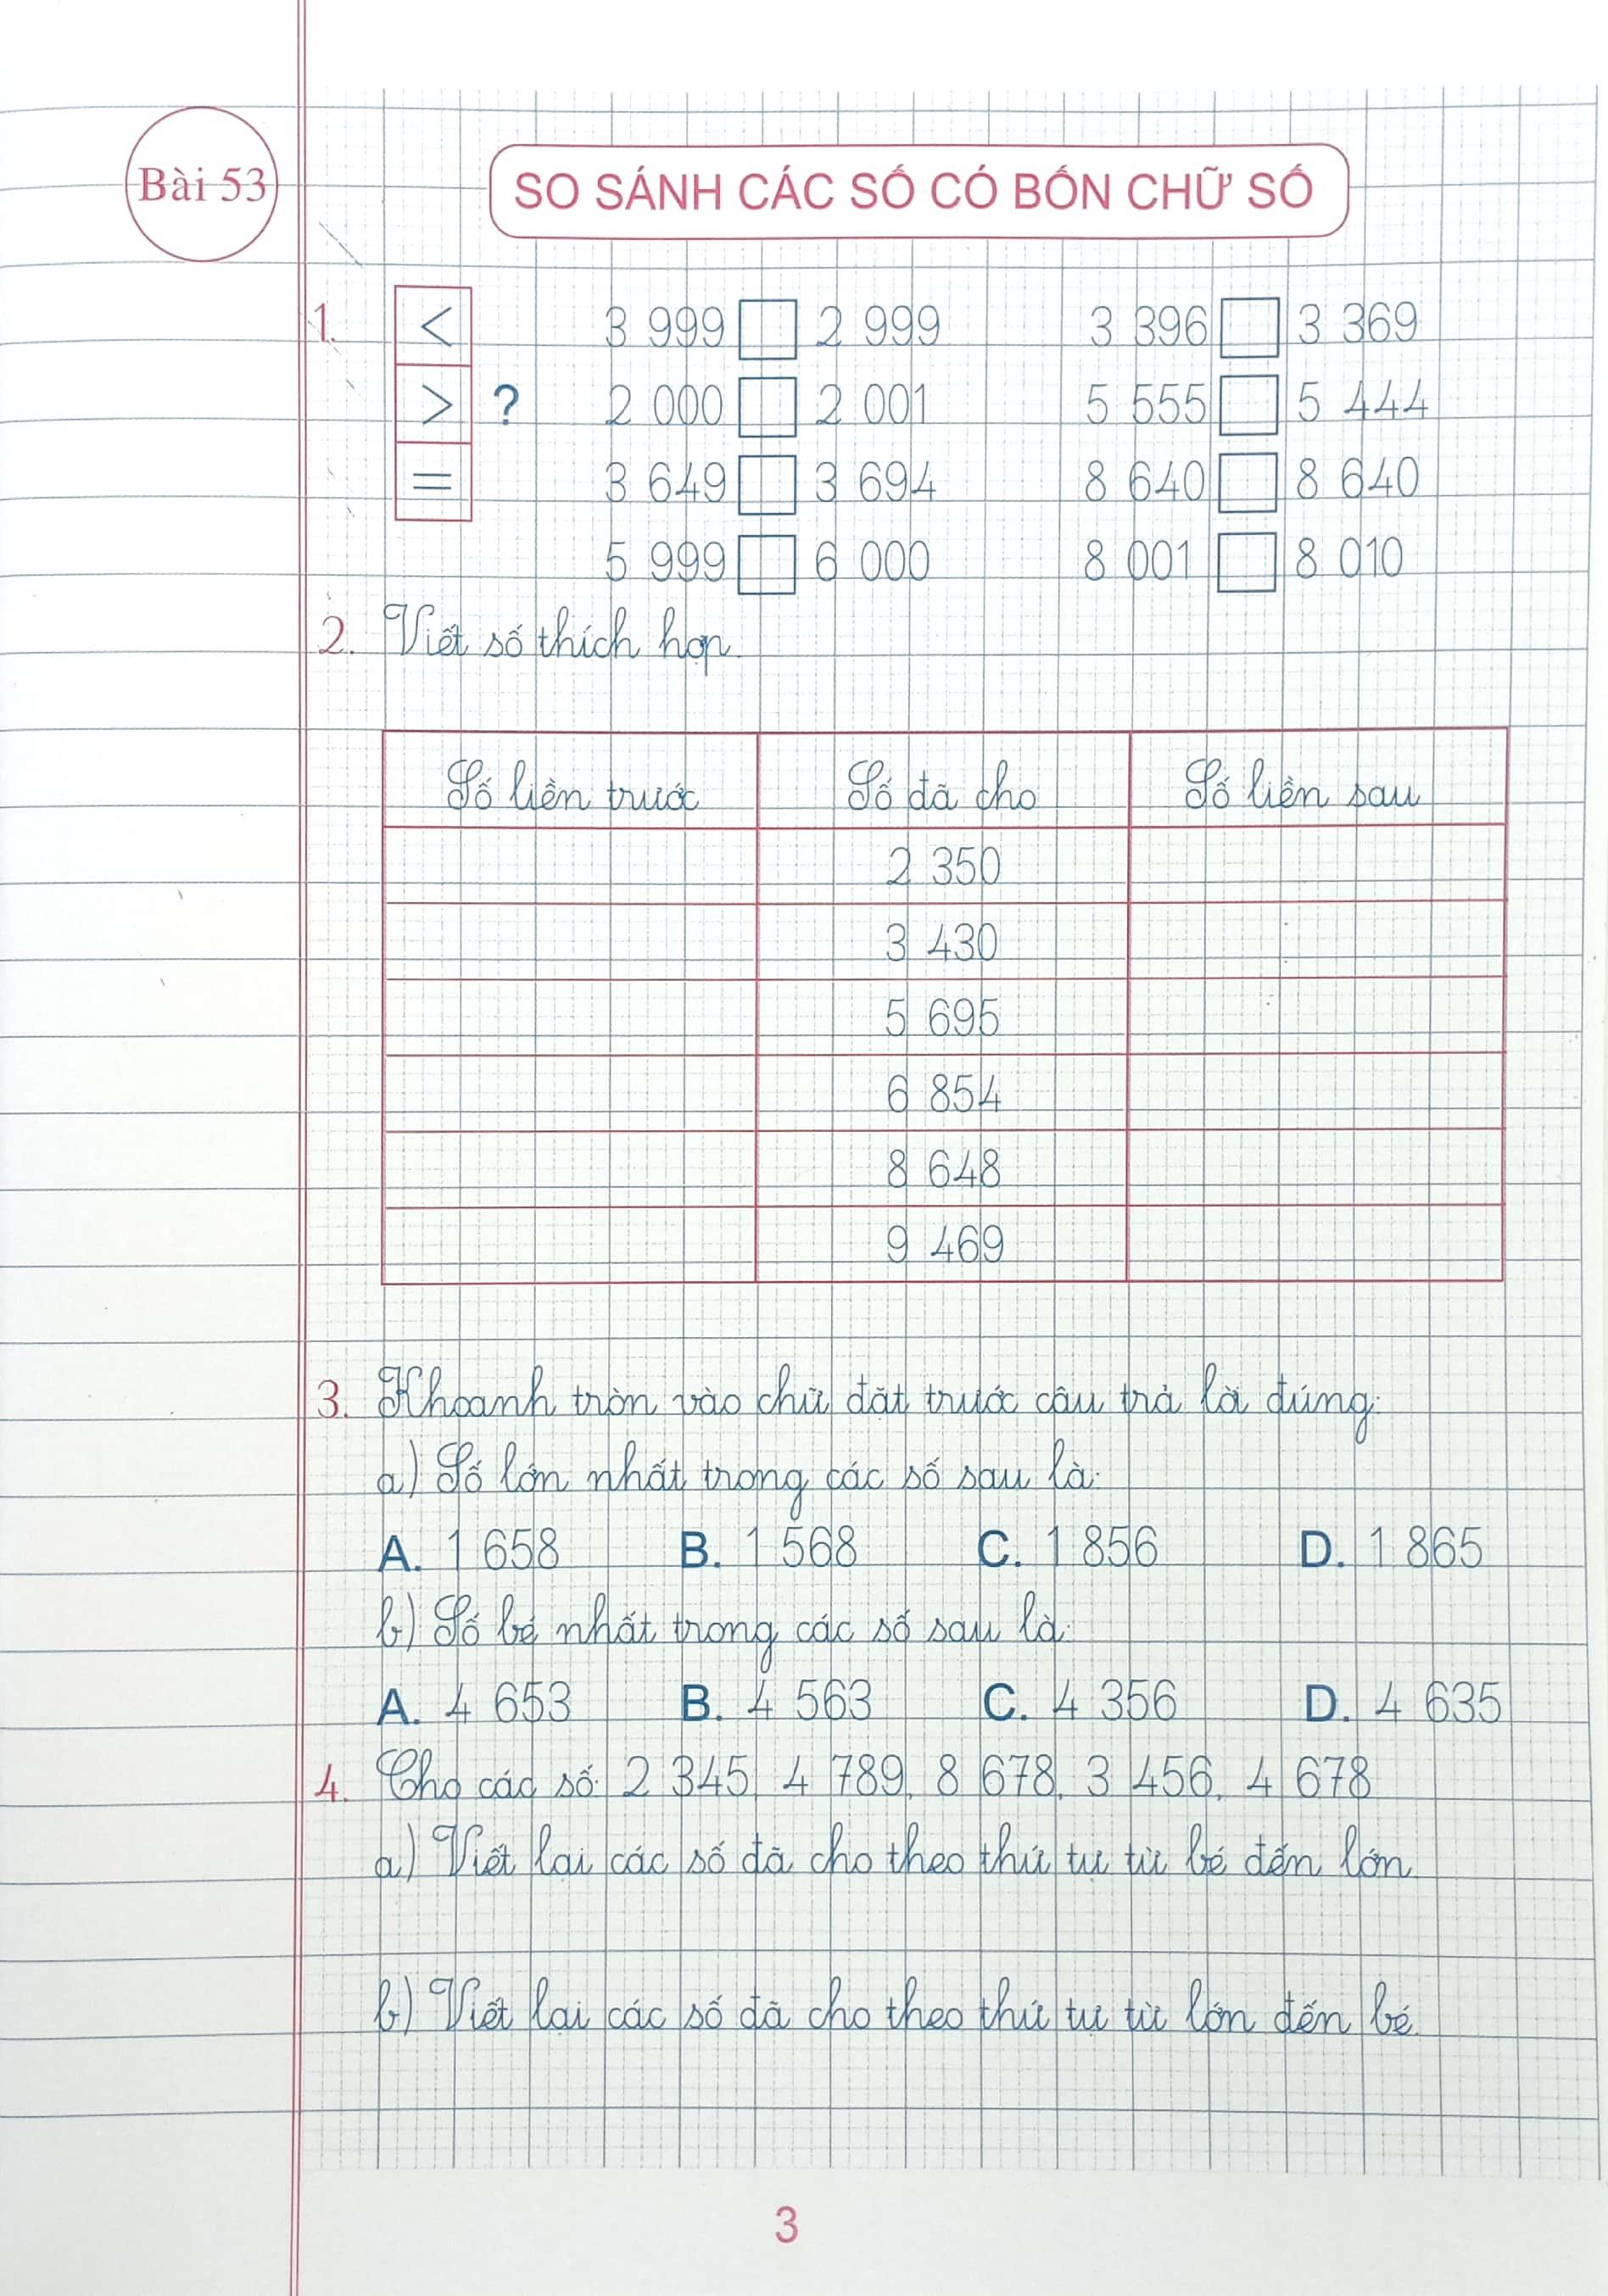 Bài 53
SO SÁNH CÁC SỐ CÓ BỐN CHỮ SỐ
1. < 3 999 □ 2 999 3 396 □ 3 369
> ? 2 000 □ 2 001 5 555 □ 5 444
= 3 649 □ 3 694 8 640 □ 8 640
5 999 □ 6 000 8 001 □ 8 010
2. Viết số thích hợp.
Số liền trước Số đã cho Số liền sau
2 350
3 430
5 695
6 854
8 648
9 469
3. Khoanh tròn vào chữ đặt trước câu trả lời đúng:
a) Số lớn nhất trong các số sau là:
A. 1 658 B. 1 568 C. 1 856 D. 1 865
b) Số bé nhất trong các số sau là:
A. 4 653 B. 4 563 C. 4 356 D. 4 635
4. Cho các số: 2 345, 4 789, 8 678, 3 456, 4 678
a) Viết lại các số đã cho theo thứ tự từ bé đến lớn.
b) Viết lại các số đã cho theo thứ tự từ lớn đến bé.
3